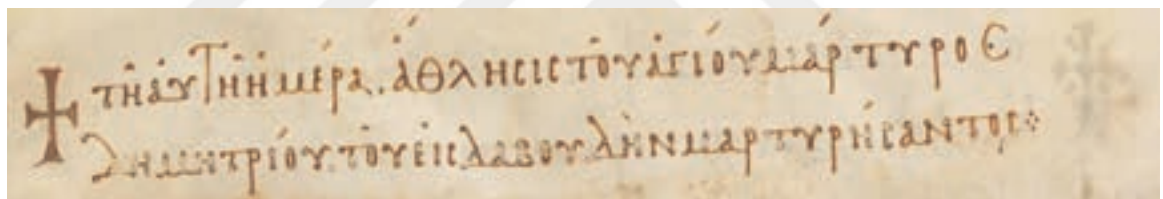 ✝ τῆ αὐτῆ ἡμέρα. ἄθλησις τοῦ ἁγίου μάρτυρος
Δημητρίου τοῦ εἰς Δαβουδὴν μαρτυρήσαντος⁘